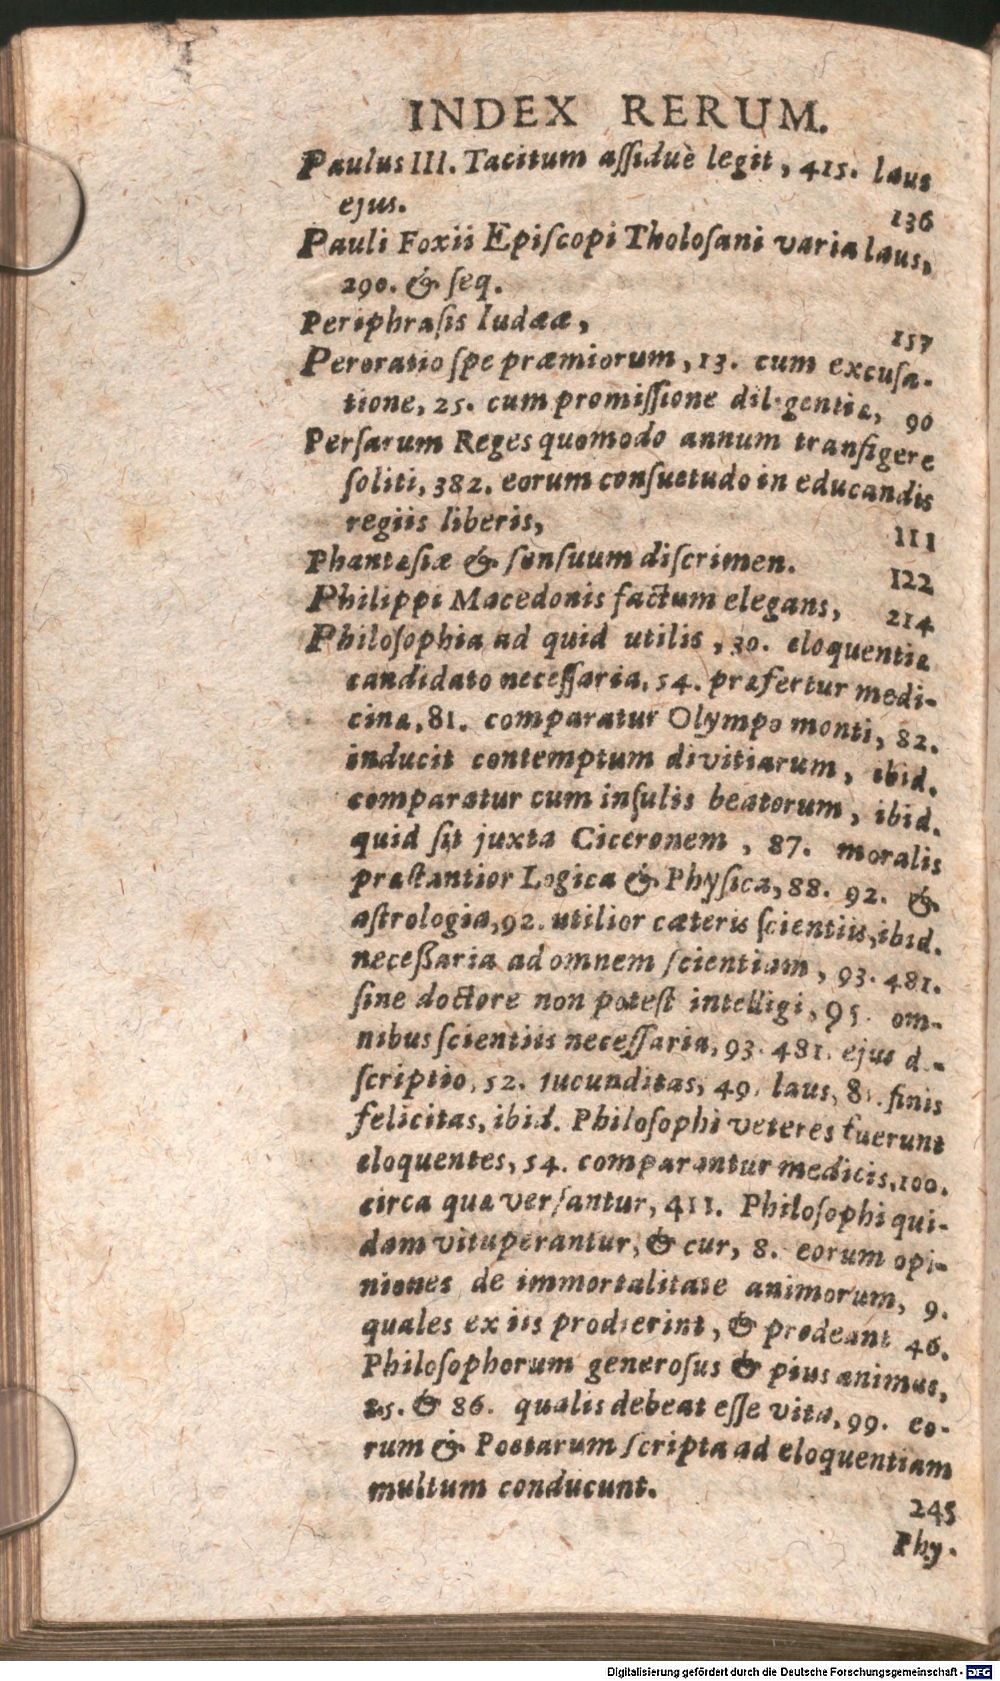 INDEX RERUM.
Paulus III. Tacitum aſſiduè legit, 415. laus
ejus. 136
Pauli Foxii Epiſcopi Tholoſani varia laus,
290. & ſeq.
Periphraſis Iudææ, 157
Peroratio ſpe præmiorum, 13. cum excuſa-
tione, 25. cum promiſſione diligentiæ, 90
Perſarum Reges quomodo annum tranſigere
ſoliti, 382. eorum conſuetudo in educandis
regiis liberis, 111
Phantaſiæ & ſenſuum diſcrimen. 122
Philippi Macedonis factum elegans, 214
Philoſophia ad quid utilis, 30. eloquentiæ
candidato neceſſaria, 54. præfertur medi-
cinæ, 81. comparatur Olympo monti, 82.
inducit contemptum divitiarum, ibid.
comparatur cum inſulis beatorum, ibid.
quid ſit juxta Ciceronem, 87. moralis
præſtantior Logica & Phyſica, 88. 92. &
aſtrologia, 92. utilior cæteris ſcientiis, ibid.
neceßaria ad omnem ſcientiam, 93. 481.
ſine doctore non poteſt intelligi, 95. om-
nibus ſcientiis neceſſaria, 93. 481. ejus de-
ſcriptio, 52. Iucunditas, 49. laus, 81. finis
felicitas, ibid. Philoſophi veteres fuerunt
eloquentes, 54. comparantur medicis, 100.
circa quæ verſantur, 411. Philoſophi qui-
dam vituperantur, & cur, 8. eorum opi-
niones de immortalitate animorum, 9.
quales ex iis prodierint, & prodeant 46.
Philoſophorum generoſus & pius animus,
85. & 86. qualis debeat eſſe vita, 99. eo-
rum & Poetarum ſcripta ad eloquentiam
multum conducunt. 245
Phy-
Digitalisierung gefördert durch die Deutsche Forschungsgemeinschaft - DFG